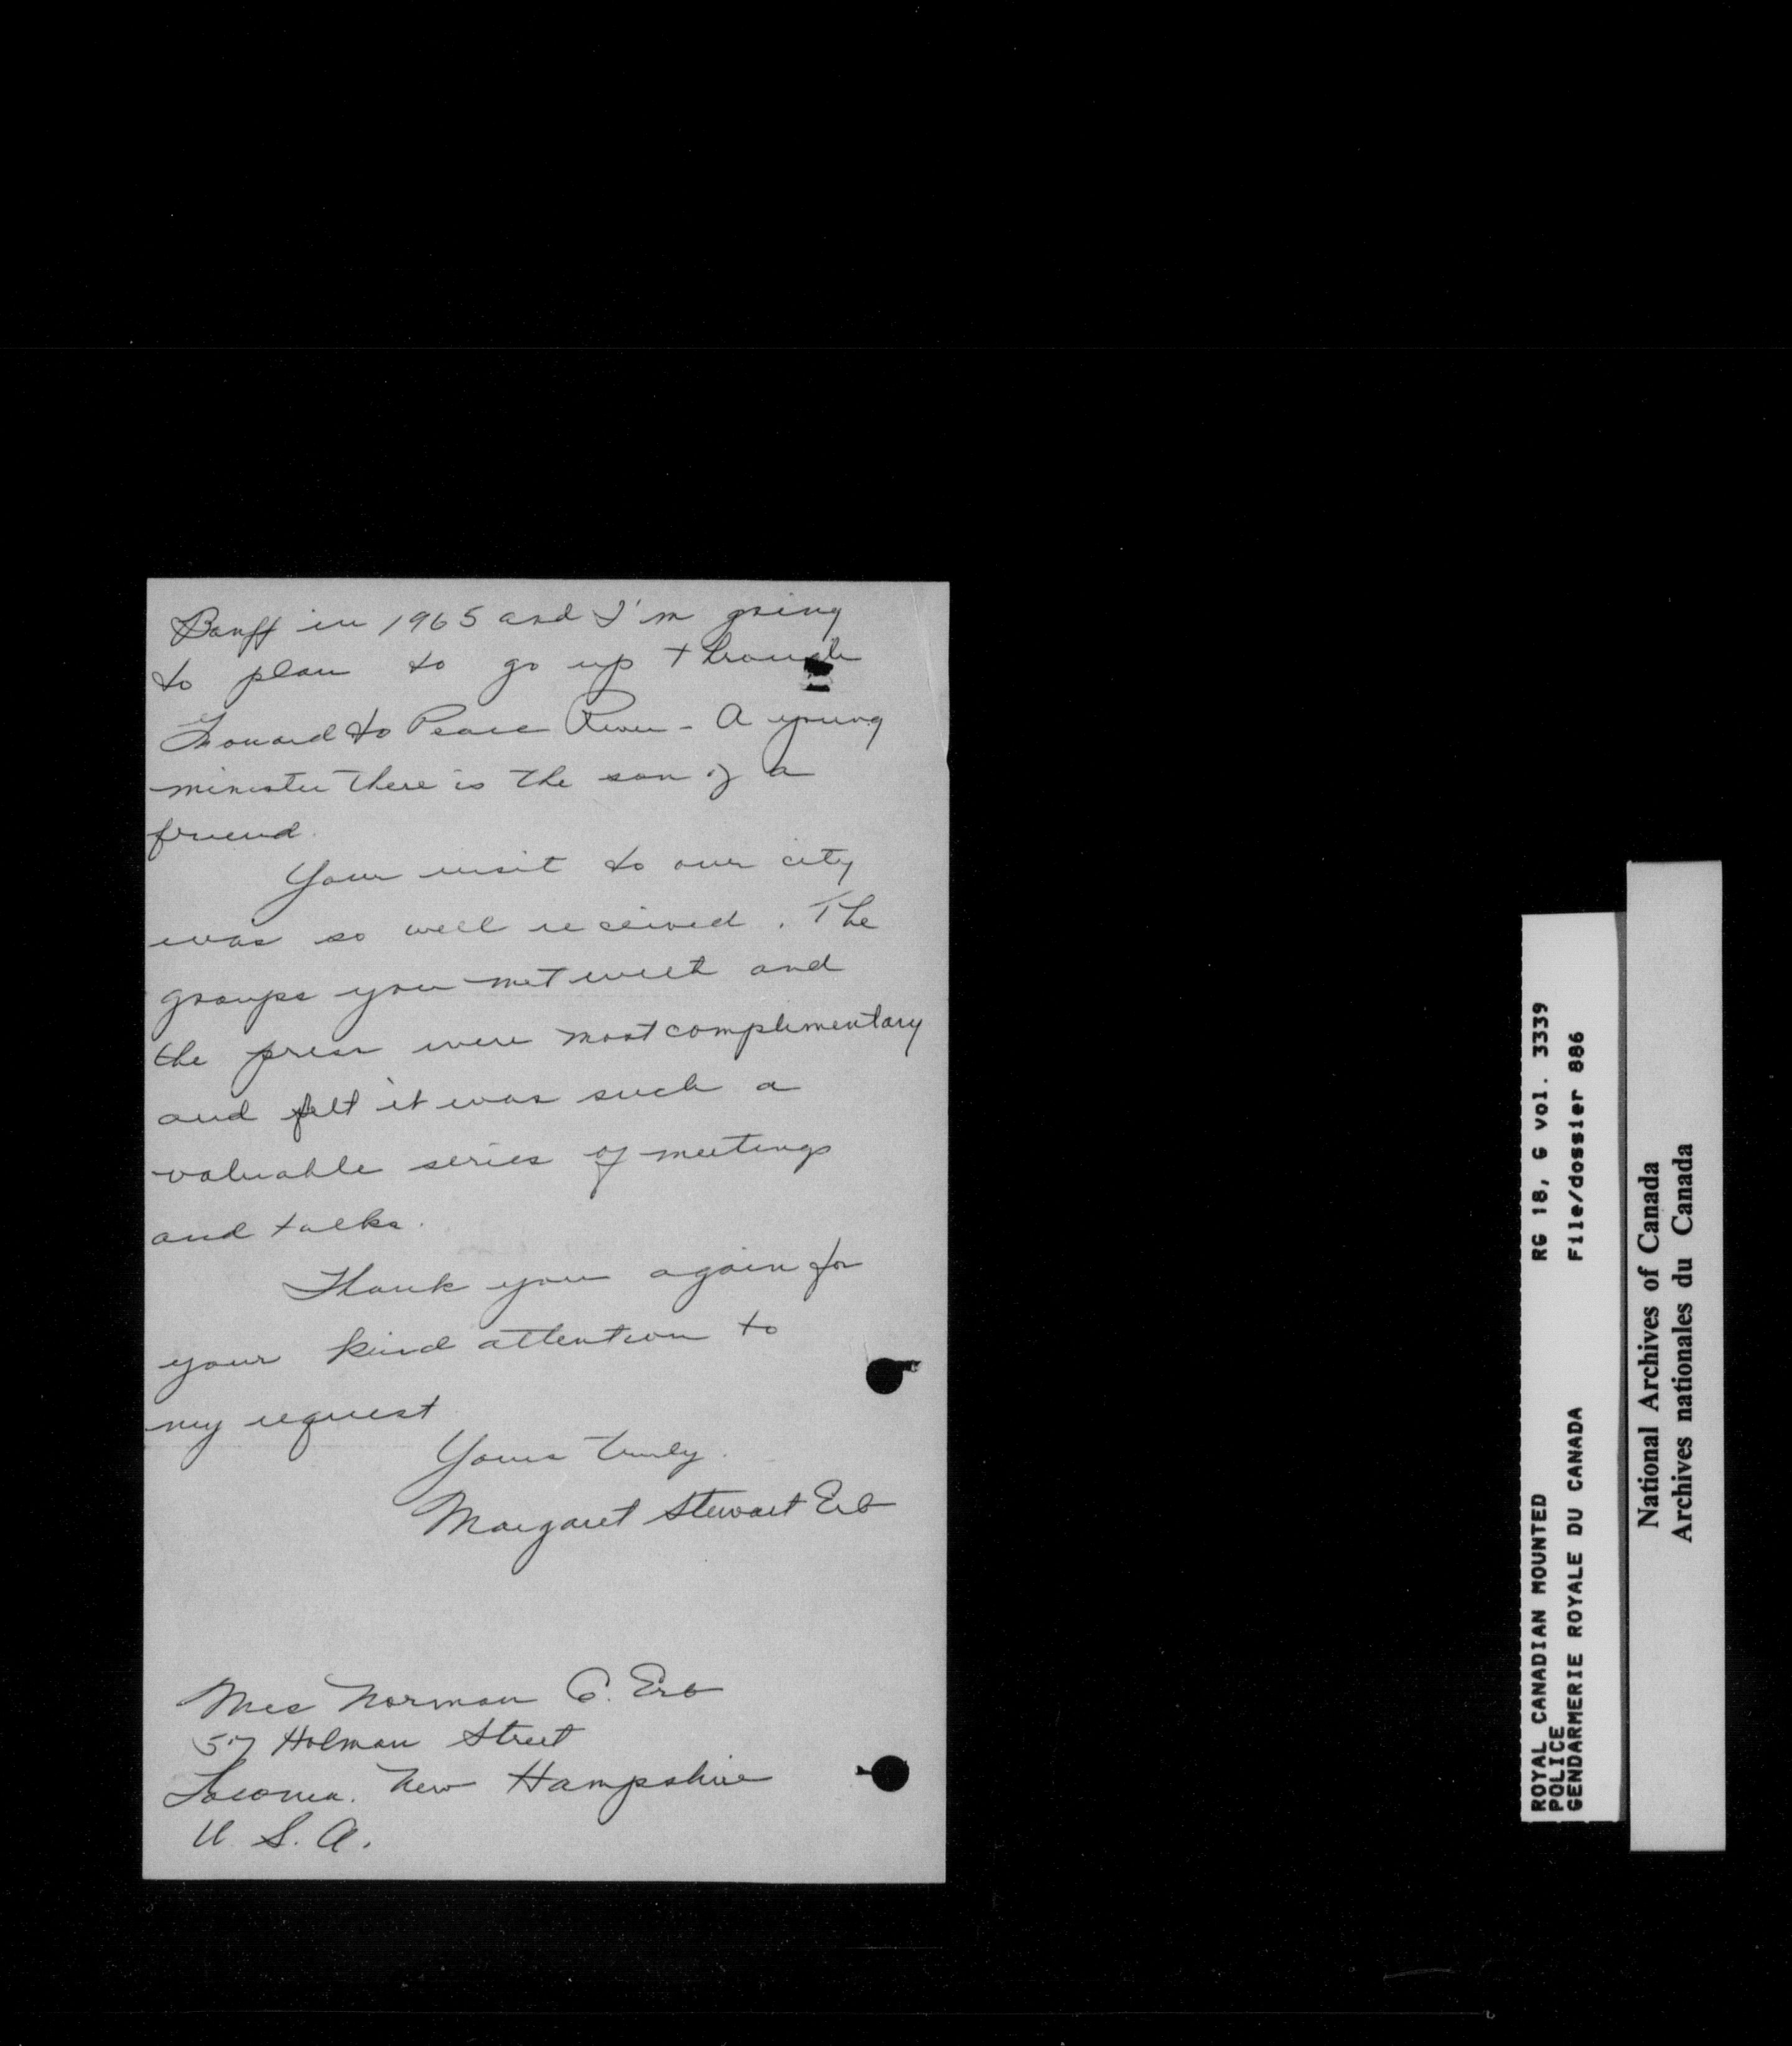 Banff in 1965 and I'm going
to plan to go up through
Toward to Peace River - A young
minister there is the son of a
friend.
Your visit to our city
was so well received. The
groups you met with and
the press were most complimentary
and felt it was such a
valuable series of meetings
and talks.
Thank you again for
your kind attention to
my request
Yours truly.
Margaret Stewart Erb
Mrs Norman C. Erb
57 Holman Street
Laconia. New Hampshire
U. S. A.
ROYAL CANADIAN MOUNTED RG 18, G vol. 3339
POLICE
GENDARMERIE ROYALE DU CANADA File/dossier 886
National Archives of Canada
Archives nationales du Canada